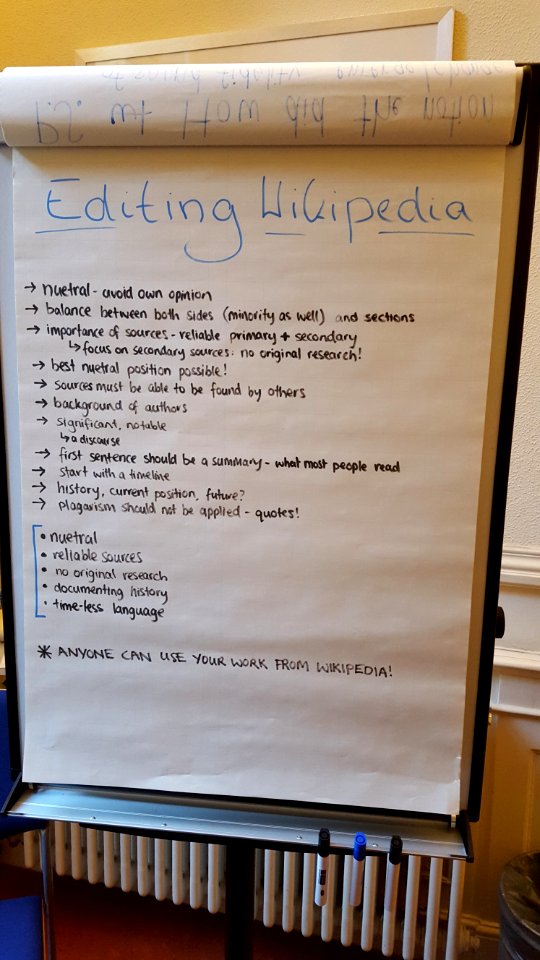 P.S. mt HOW did the notion
Editing Wikipedia
→ nuetral - avoid own opinion
→ balance between both sides (minority as well) and sections
→ importance of sources - reliable primary + secondary
↳ focus on secondary sources: no original research!
→ best nuetral position possible!
→ sources must be able to be found by others
→ background of authors
→ significant, notable
↳ a discourse
→ first sentence should be a summary - what most people read
→ start with a timeline
→ history, current position, future?
→ plagarism should not be applied - quotes!
• nuetral
• reliable sources
• no original research
• documenting history
• time-less language
* ANYONE CAN USE YOUR WORK FROM WIKIPEDIA!